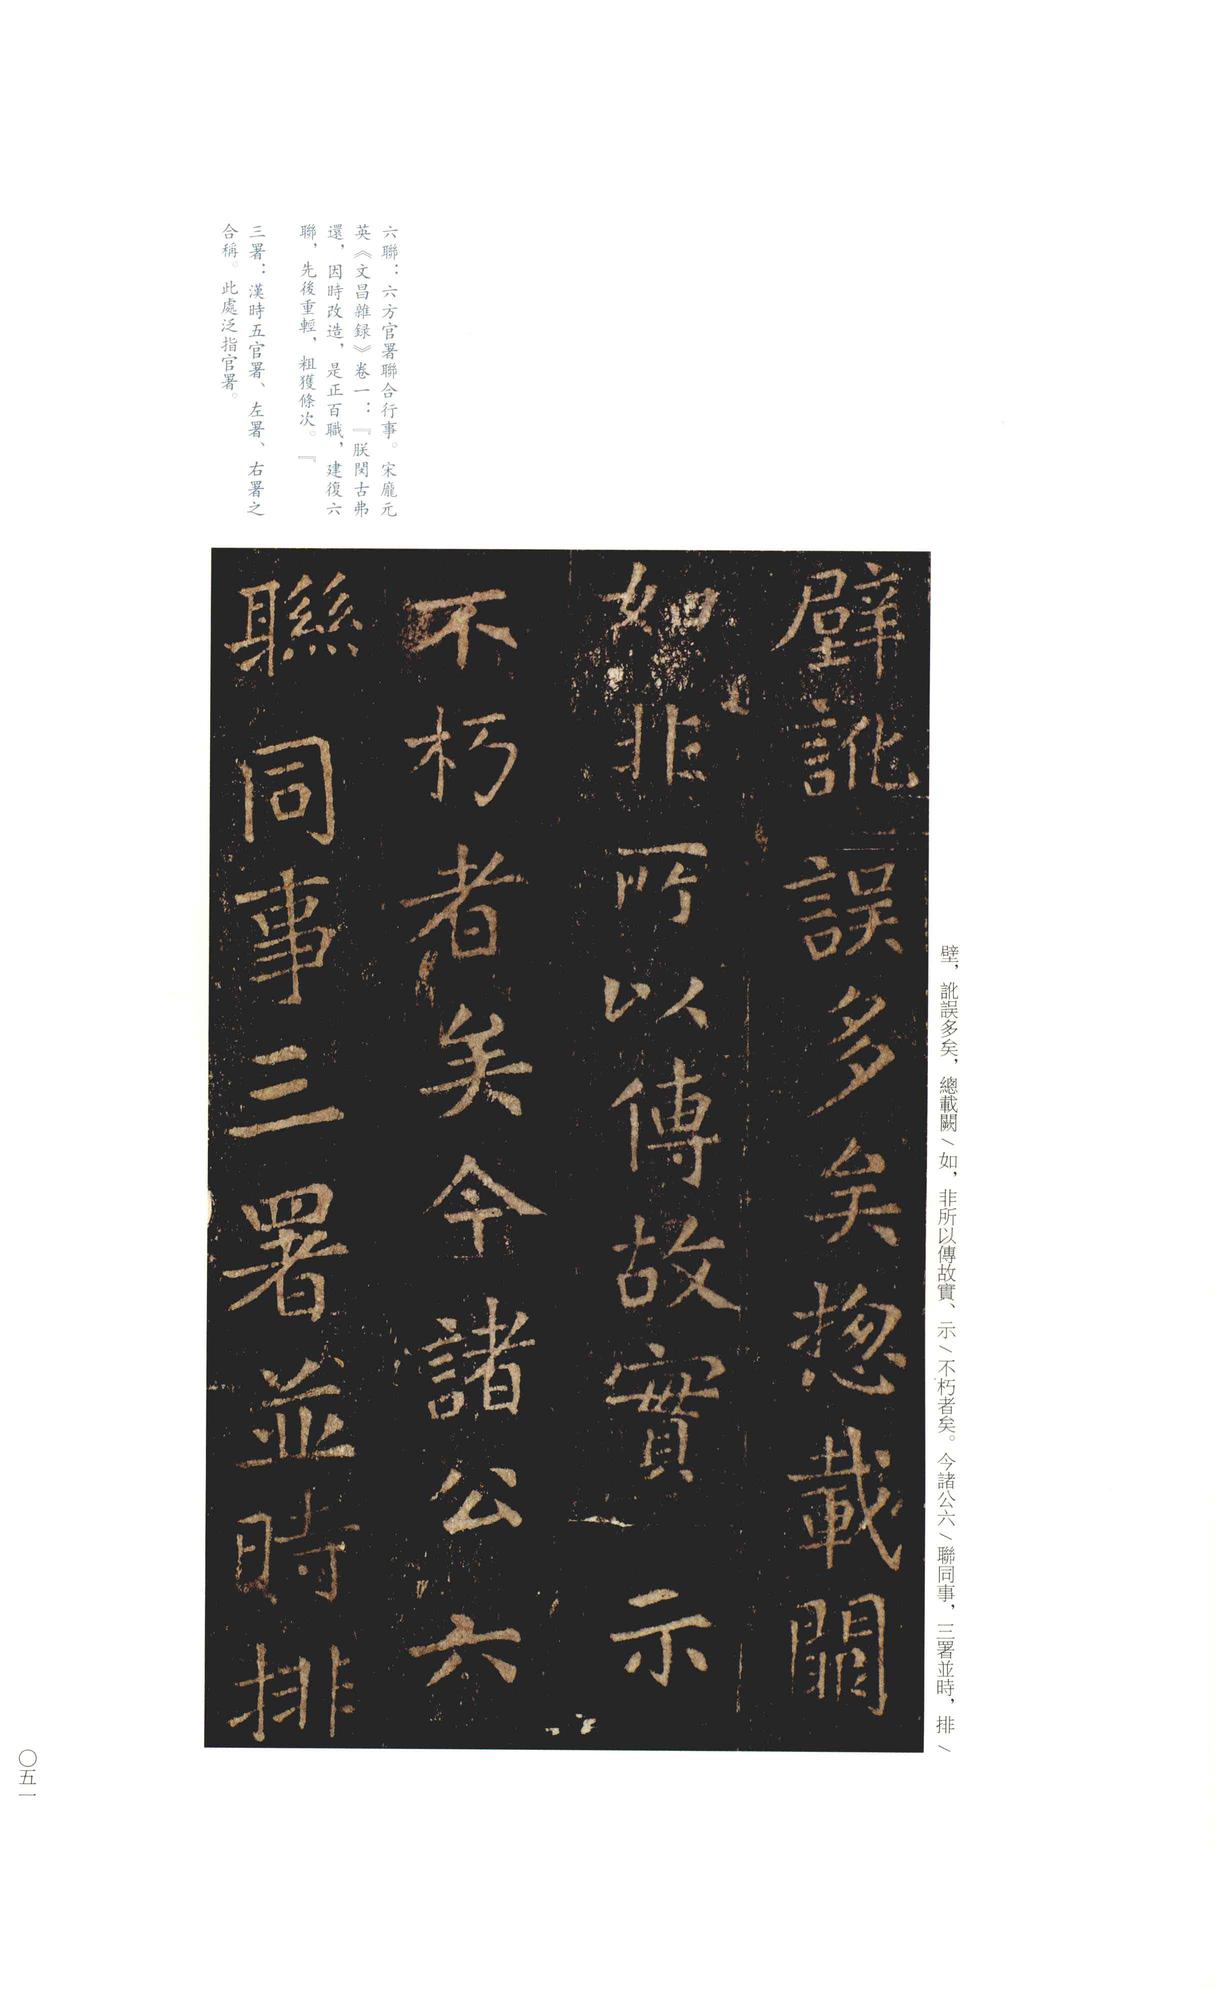 壁訛誤多矣揔載闕
如非所以傳故實示
不朽者矣今諸公六
聯同事三署並時排
壁，訛誤多矣，總載闕／如，非所以傳故實、示／不朽者矣。今諸公六／聯同事，三署並時，排／
六聯：六方官署聯合行事。宋龐元
英《文昌雜録》卷一：『朕閔古弗
還，因時改造，是正百職，建復六
聯，先後重輕，粗獲條次。』
三署：漢時五官署、左署、右署之
合稱。此處泛指官署。
〇五一